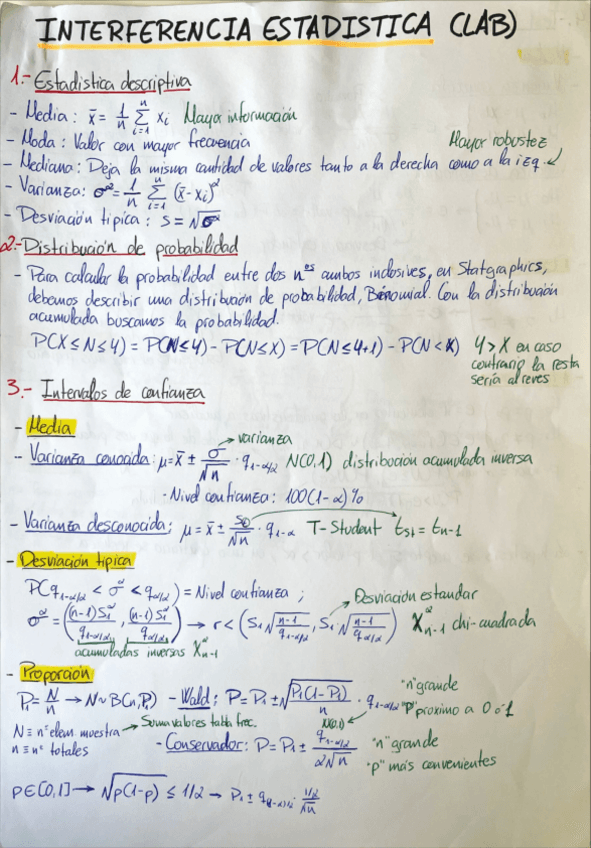 INTERFERENCIA ESTADISTICA (LAB)
1.- Estadistica descriptiva
- Media: x̄ = 1/n Σ(i=1..n) xi Mayor información
- Moda: Valor con mayor frecuencia
Mayor robustez
- Mediana: Deja la misma cantidad de valores tanto a la derecha como a la izq.
- Varianza: σ² = 1/n Σ(i=1..n) (x̄ - xi)²
- Desviación tipica: s = √σ²
2.- Distribución de probabilidad
- Para calcular la probabilidad entre dos nºs ambos inclusives, en Statgraphics,
debemos describir una distribución de probabilidad, Binomial. Con la distribución
acumulada buscamos la probabilidad.
P(X ≤ N ≤ Y) = P(N ≤ Y) - P(N ≤ X) = P(N ≤ Y+1) - P(N < X) Y > X en caso
contrario la resta
sería al reves
3.- Intervalos de confianza
- Media
→ varianza
- Varianza conocida: μ = x̄ ± σ/√n · q1-α/2 N(0,1) distribución acumulada inversa
· Nivel confianza: 100(1-α)%
- Varianza desconocida: μ = x̄ ± /√n · q1-α T-Student tst = tn-1
- Desviación tipica
P(q1-α/2 < σ² < qα/2) = Nivel confianza ;
Desviación estandar
σ² = ((n-1)S1²/q1-α/2, (n-1)S1²/qα/2) → r < (S1√(n-1/q1-α/2), S1·√(n-1/qα/2)) X²n-1 chi-cuadrada
acumuladas inversas X²n-1
- Proporción
"n" grande
P1 = N/n → N~B(n,P1) - Wald: P = P1 ± √(P1(1-P1)/n) · q1-α/2 "P" proximo a 0 ó 1
N ≡ nº elem muestra → Suma valores tabla frec. N(0,1)
n ≡ nº totales - Conservador: P = P1 ± q1-α/2/2√n "n" grande
"p" más convenientes
p∈[0,1] → √p(1-p) ≤ 1/2 → P1 ± 1/2/√n